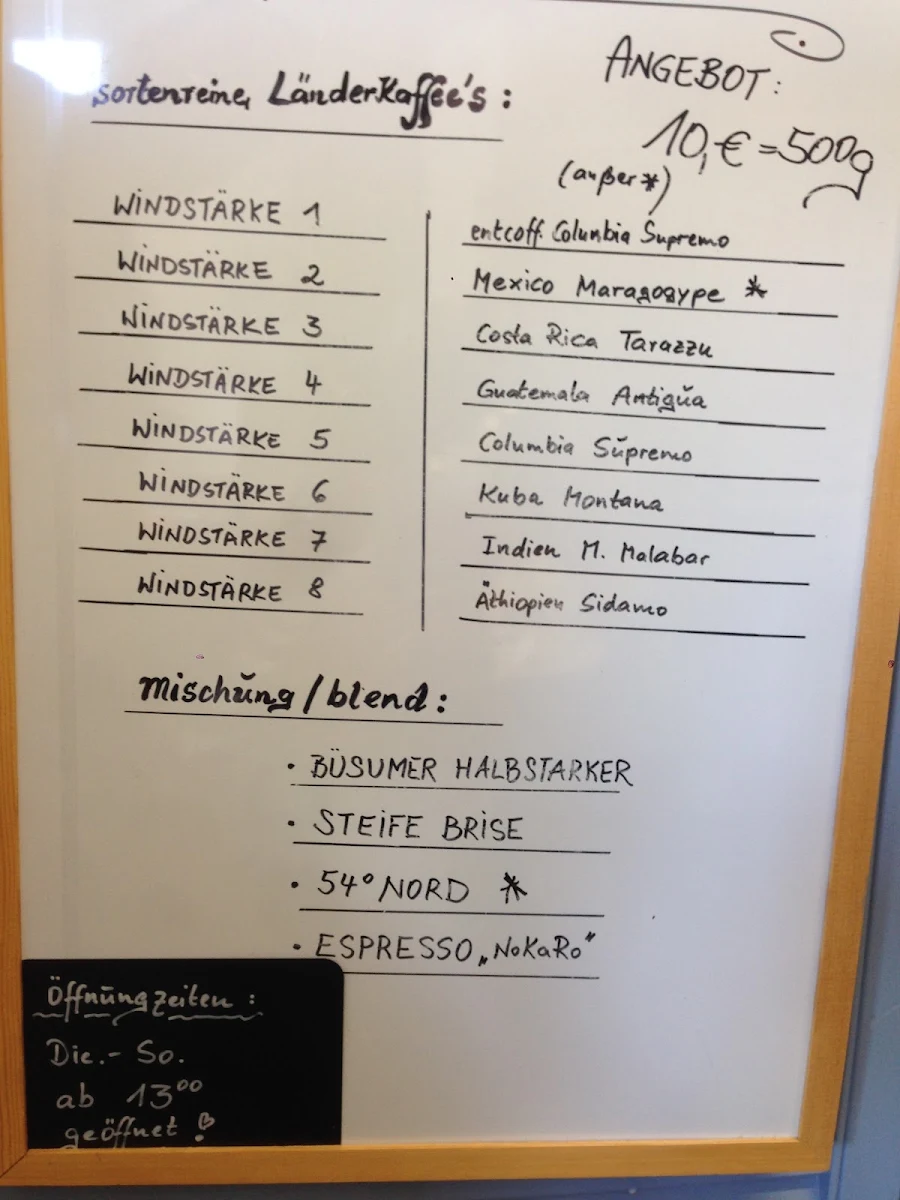 ANGEBOT:
sortenreine LänderKaffee's :
10,€ =500g
(außer *)
WINDSTÄRKE 1 entcoff. Columbia Supremo
WINDSTÄRKE 2 Mexico Maragogype *
WINDSTÄRKE 3 Costa Rica Tarazzu
WINDSTÄRKE 4 Guatemala Antigua
WINDSTÄRKE 5 Columbia Supremo
WINDSTÄRKE 6 Kuba Montana
WINDSTÄRKE 7 Indien M. Malabar
WINDSTÄRKE 8 Äthiopien Sidamo
Mischung / blend :
• BÜSUMER HALBSTARKER
• STEIFE BRISE
• 54° NORD *
• ESPRESSO „NoKaRo“
Öffnungzeiten :
Die.- So.
ab 13⁰⁰
geöffnet !